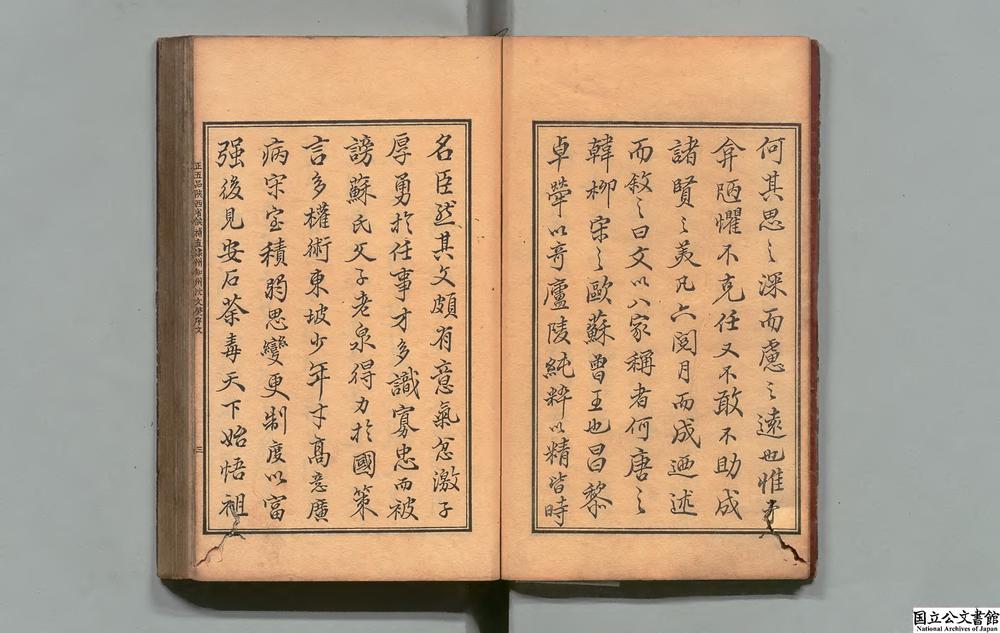 何其思之深而慮之遠也惟
弇陋懼不克任又不敢不助成
諸賢之美凡六閱月而成迺述
而敘之曰文以八家稱者何唐之
韓柳宋之歐蘇曾王也昌黎
卓犖以奇廬陵純粹以精皆時
名臣然其文頗有意氣忿激子
厚勇於任事才多識寡忠而被
謗蘇氏父子老泉得力於國策
言多權術東坡少年才高意廣
病宋室積弱思變更制度以富
强後見安石荼毒天下始悟祖
三
国立公文書館
National Archives of Japan